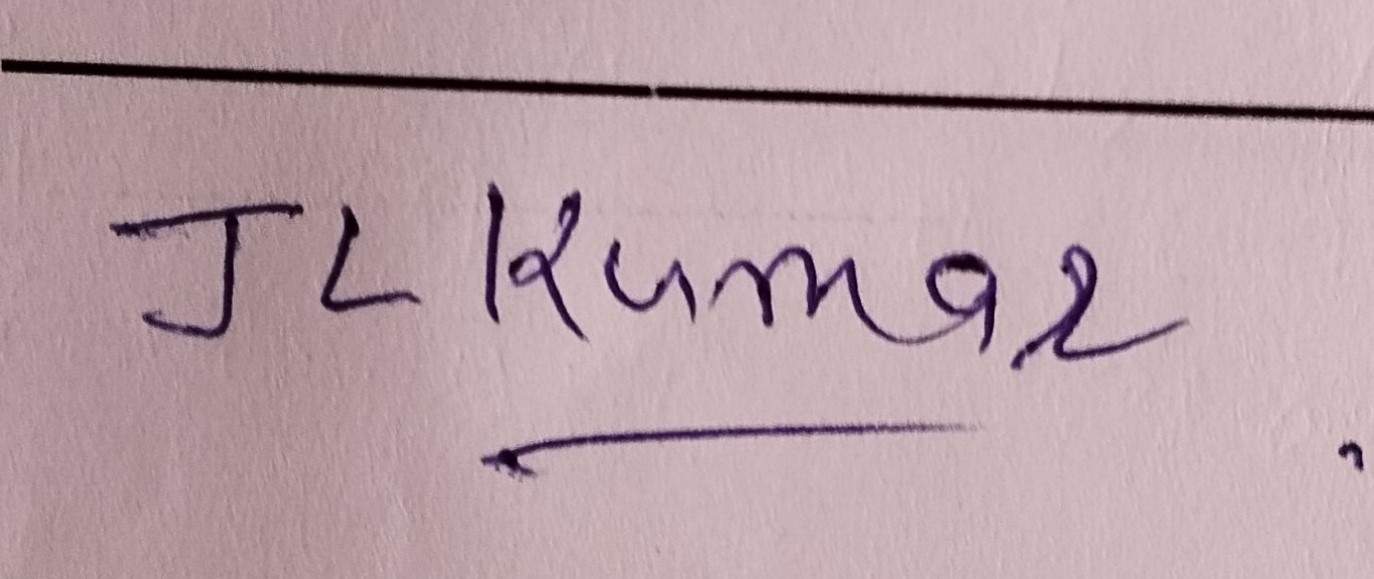 JL Kumar